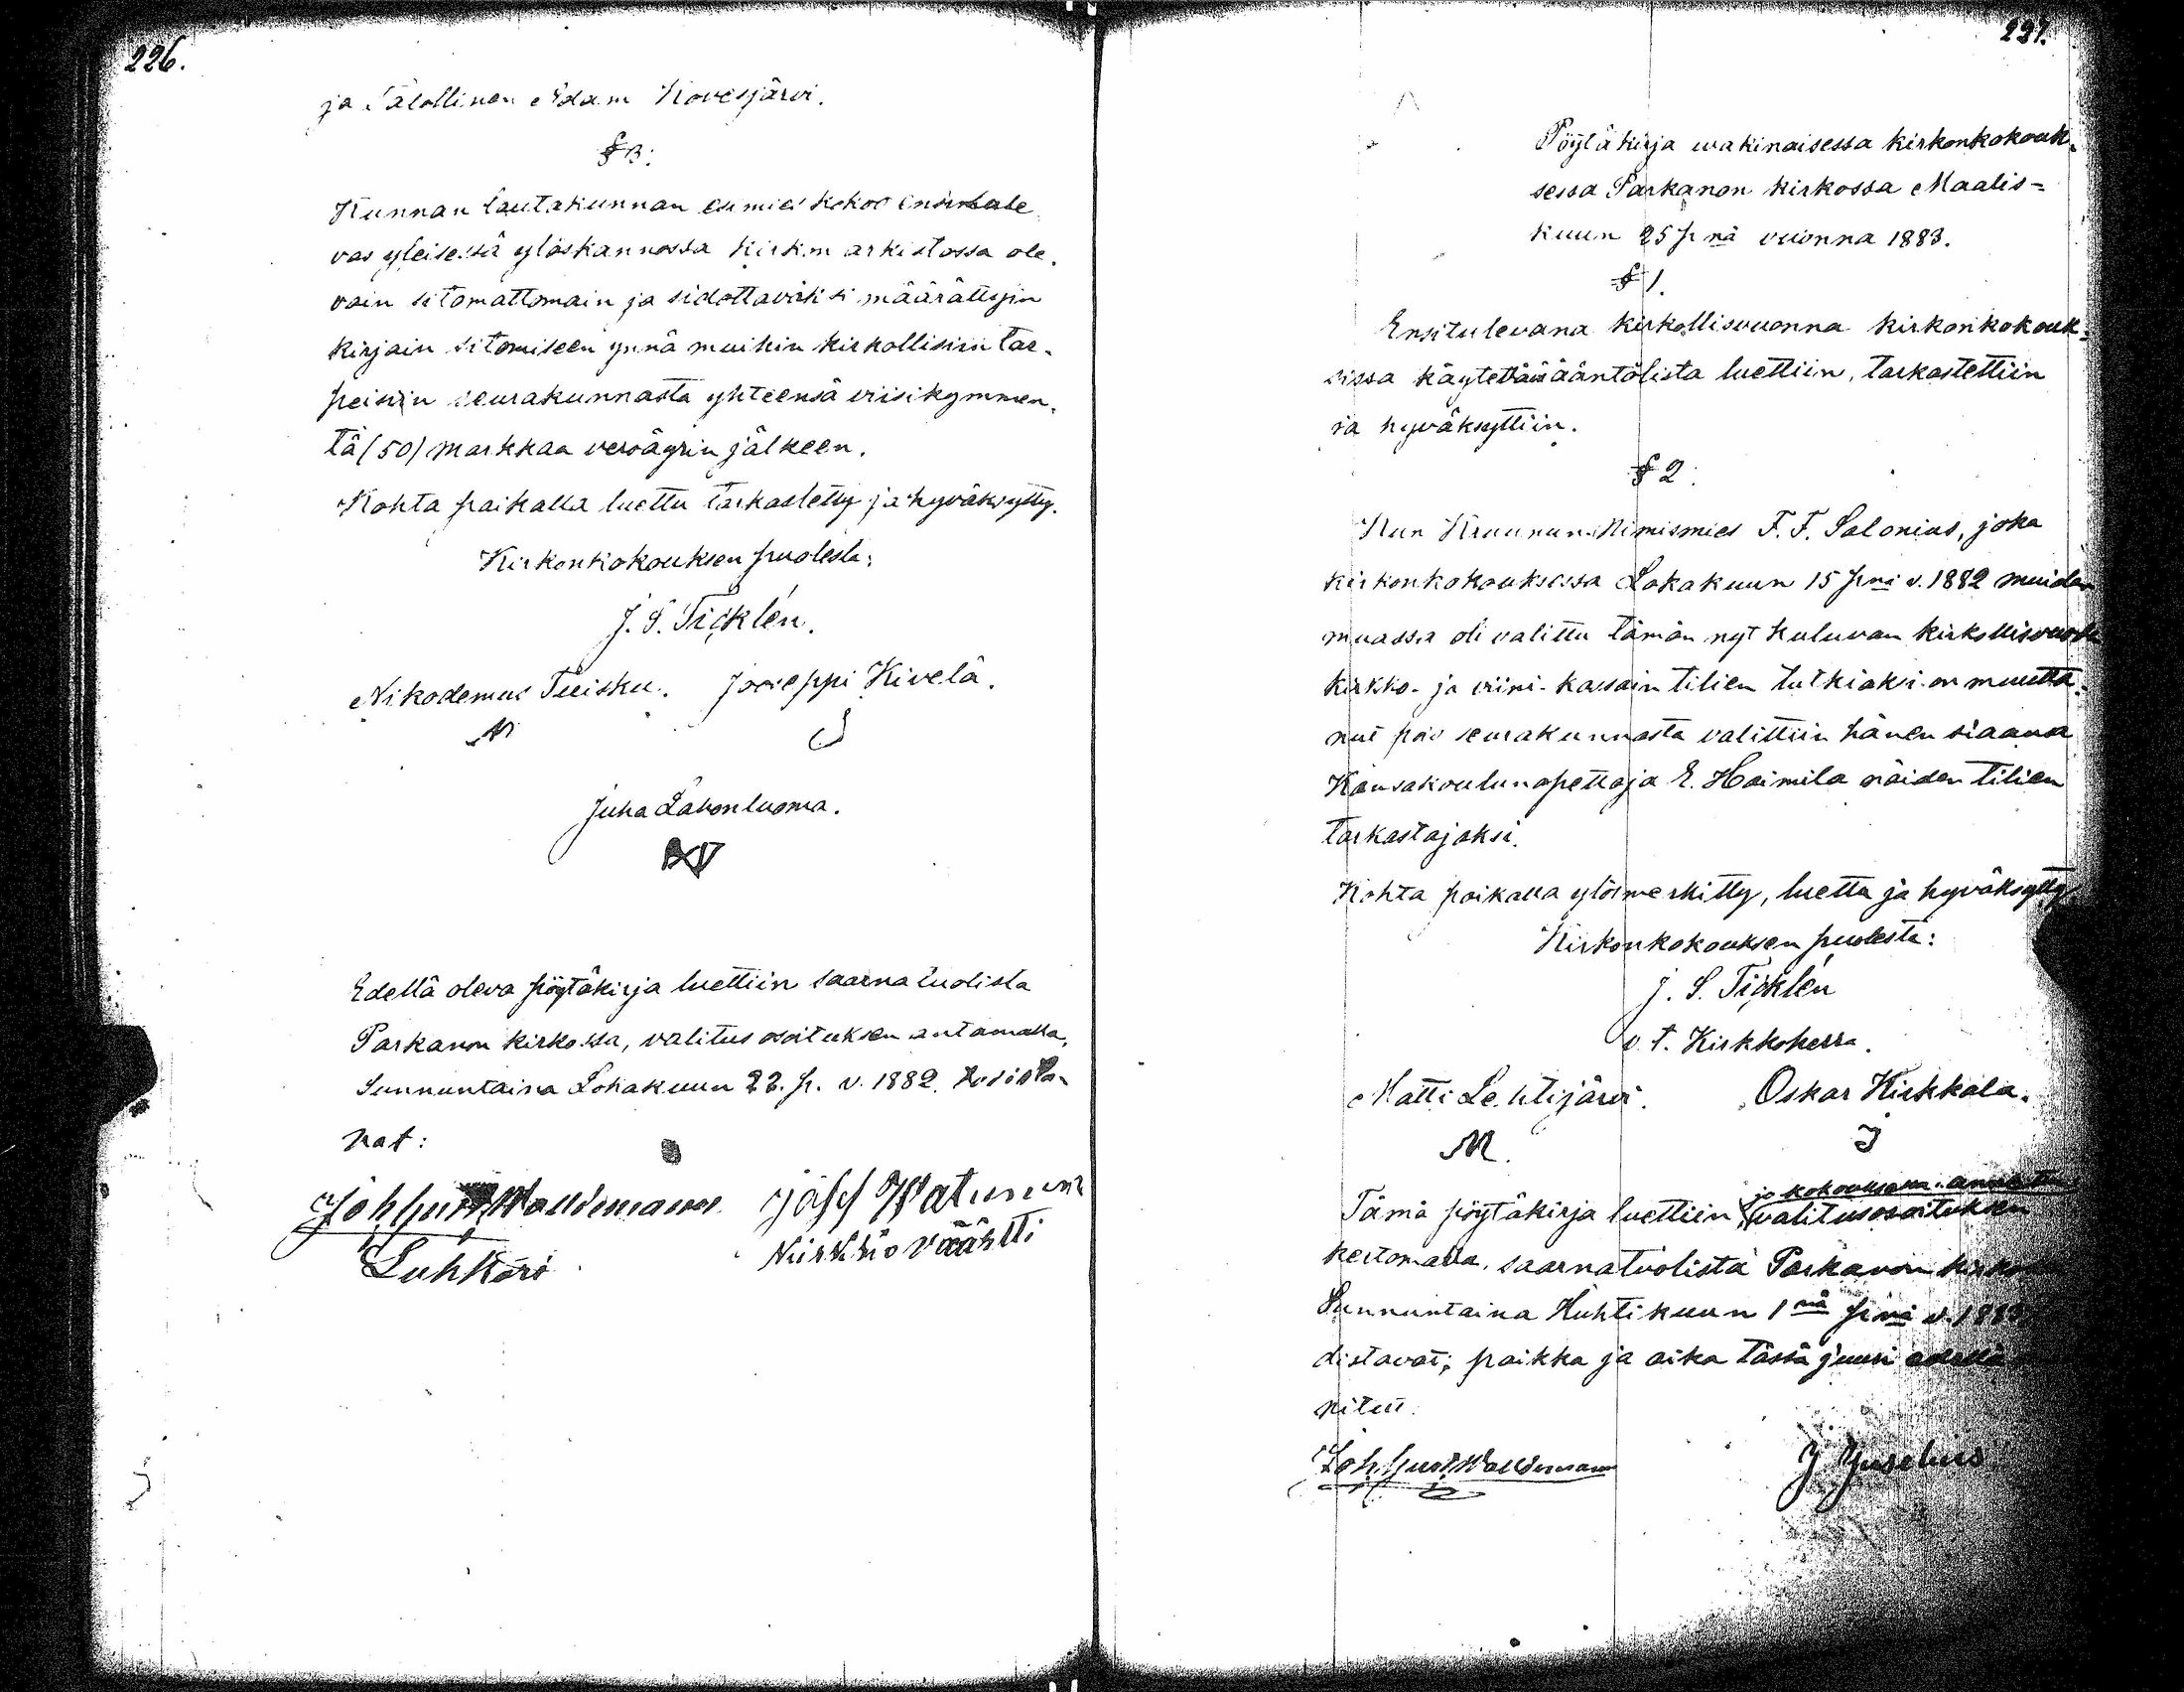 226.
ja Talollinen Adam Kovesjärvi.
§ 3:
Kunnan lautakunnan esimies kokoo ensinkule
vas yleisessä ylöskannossa kirkon arkistossa ole-
vain sitomattomain ja sidottaviksi määrättyin
kirjain sitomiseen ynnä muihin kirkollisiin tar-
peisiin seurakunnasta yhteensä viisikymmen-
tä (50) markkaa veroäyrin jälkeen.
Kohta paikalla luettu tarkastettu ja hyväksytty.
Kirkonkokouksen puolesta:
J. S. Ticklén.
Nikodemus Tuisku. Jooseppi Kivelä.
N J
Juha Lavonluoma.
Edellä oleva pöytäkirja luettiin saarnatuolista
Parkanon kirkossa, valitus osoituksen antamalla,
Sunnuntaina Lokakuun 22. p. v. 1882. todista-
vat:
Joh Gust Walldemann Josef Watunen
Luhkari Kirkkoväärtti
227.
Pöytäkirja wakinaisessa kirkonkokouk-
sessa Parkanon kirkossa Maalis=
kuun 25 pnä vuonna 1883.
§ 1.
Ensitulevana kirkollisvuonna kirkonkokouk-
sissa käytettävä ääntölista luettiin, tarkastettiin
ja hyväksyttiin.
§ 2.
Kun Kruunun Nimismies F. F. Salonius, joka
kirkonkokouksessa Lokakuun 15 pnä v. 1882 muiden
muassa oli valittu tämän nyt kuluvan kirkollisvuoden
kirkko- ja viini-kassain tilien tutkiaksi on muutta-
nut pois seurakunnasta valittiin hänen siaansa
Kansakoulunopettaja E. Haimila näiden tilien
tarkastajaksi.
Kohta paikalla ylösmerkitty, luettu ja hyväksytty
Kirkonkokouksen puolesta:
J. S. Ticklén
v. t. Kirkkoherra.
Matti Lehtijärvi. Oskar Kirkkala.
M. J
jo kokouksessa annetun
Tämä pöytäkirja luettiin, valitusosoituksen
kertomalla, saarnatuolista Parkanon
Sunnuntaina Huhtikuun 1 nä pnä v. 1883
distavat; paikka ja aika tässä juuri edellä
nitut.
Joh. Gust. Walldemann J Juselius